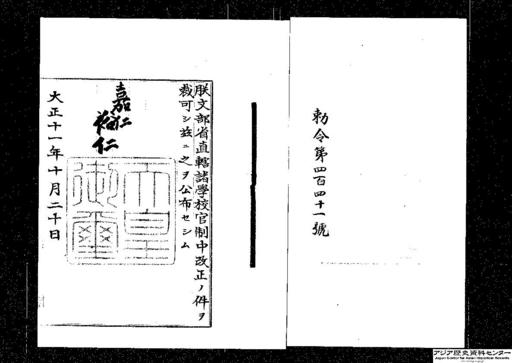 勅令第四百四十一號
朕文部省直轄諸學校官制中改正ノ件ヲ
裁可シ玆ニ之ヲ公布セシム
嘉仁
裕仁
天皇
御璽
大正十一年十月二十日
アジア歴史資料センター
Japan Center for Asian Historical Records